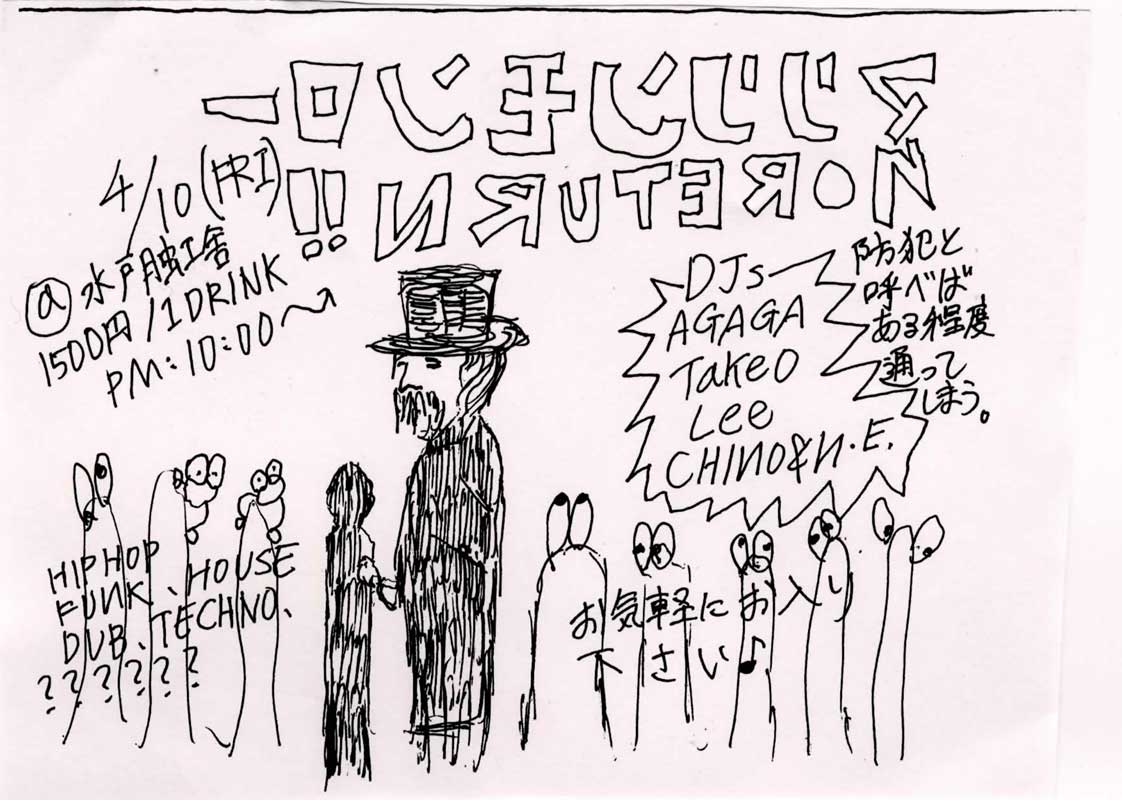 マリリンモンロー
NORETURN!!
4/10(FRI)
@水戸
1500円/1DRINK
PM:10:00〜
DJs
AGAGA
Takeo
Lee
CHINO&N.E.
防犯と
呼べば
ある程度
通って
しまう。
HIPHOP
FUNK、HOUSE
DUB、TECHNO、
??????
お気軽にお入り
下さい♪